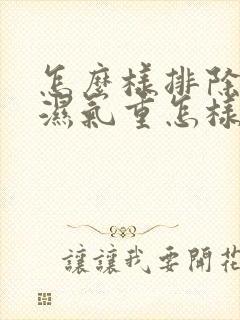 怎麼樣排除
濕氣重怎樣
讓讓我要開花